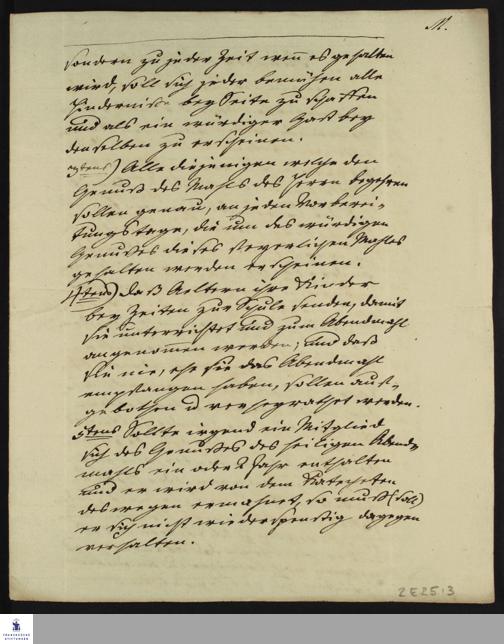 11.
sondern zu jeder Zeit wenn es gehalten
wird, soll sich jeder bemühen alle
Hindernisse bey Seite zu schaffen
und als ein würdiger Gast bey
denselben zu erscheinen.
3tens) Alle diejenigen welche den
Genuß des Mahls des Herrn begehren
sollen genau, an jeden Vorberei-
tungstage, die um des würdigen
Genußes dieses feyerlichen Mahles
gehalten werden erscheinen.
4tens) Daß Aeltern ihre Kinder
bey Zeiten zur Schule senden, damit
sie unterrichtet und zum Abendmahl
angenommen werden; und daß
sie nie, ehe sie das Abendmahl
empfangen haben, sollen auf-
gebothen u verheyrathet werden.
5tens Sollte irgend ein Mitglied
sich des Genußes des heiligen Abend-
mahls ein oder 2 Jahr enthalten
und er wird von dem Katecheten
deswegen ermahnet, so muß (soll)
er sich nicht wiederspenstig dagegen
verhalten.
2 E 25 : 3
FRANCKESCHE
STIFTUNGEN